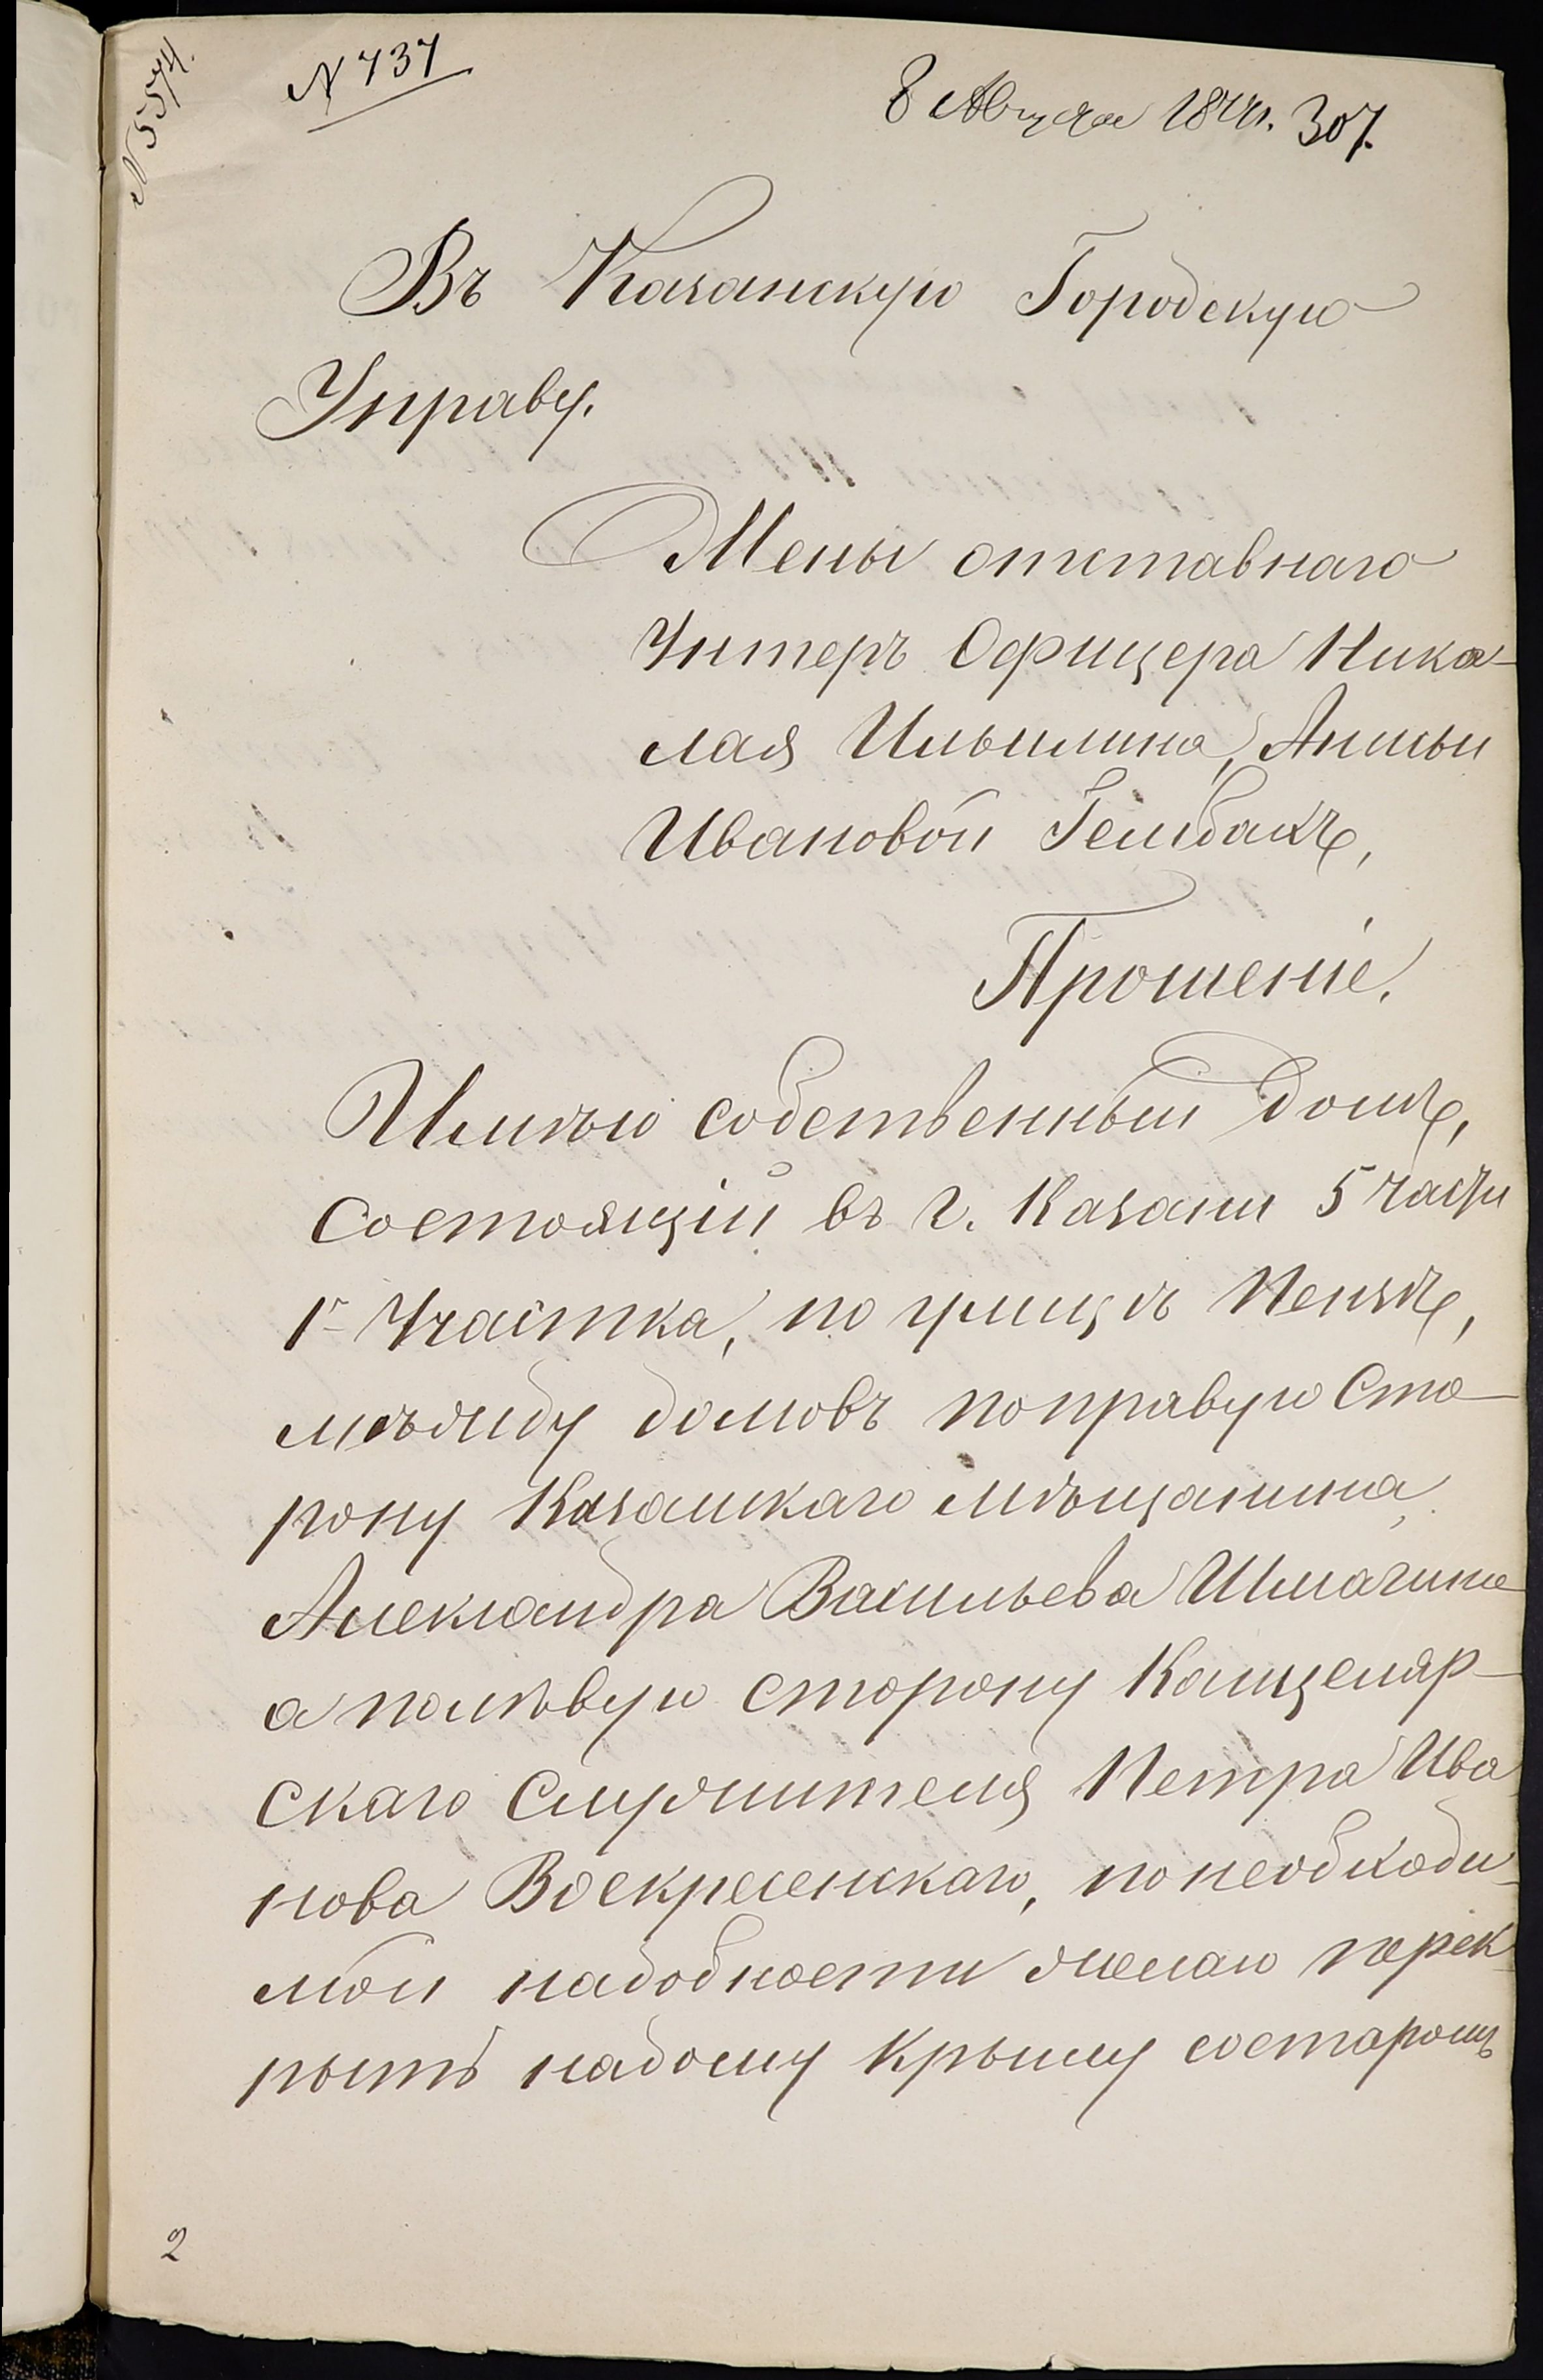 N 5574.
N 737
8 Августа 1877г. 307.
Въ Казанскую Городскую
Управу.
Жены отставнаго
Унтеръ Офицера Ника-
лая Ильилина, Анисьи
Ивановой Гембакъ,
Прошеніе.
Имѣю собственный домъ,
состоящій въ г. Казани 5 части
1го Участка, по улицѣ Пензѣ,
мѣжду домовъ по правую сто-
рону Казанскаго мѣщанина
Александра Васильева Шмагина
а полѣвую сторону Канцеляр-
скаго служителя Петра Ива-
нова Воскресенскаго, по необходи-
мой надобности желаю перек-
рыть надому крышу состаромъ
2